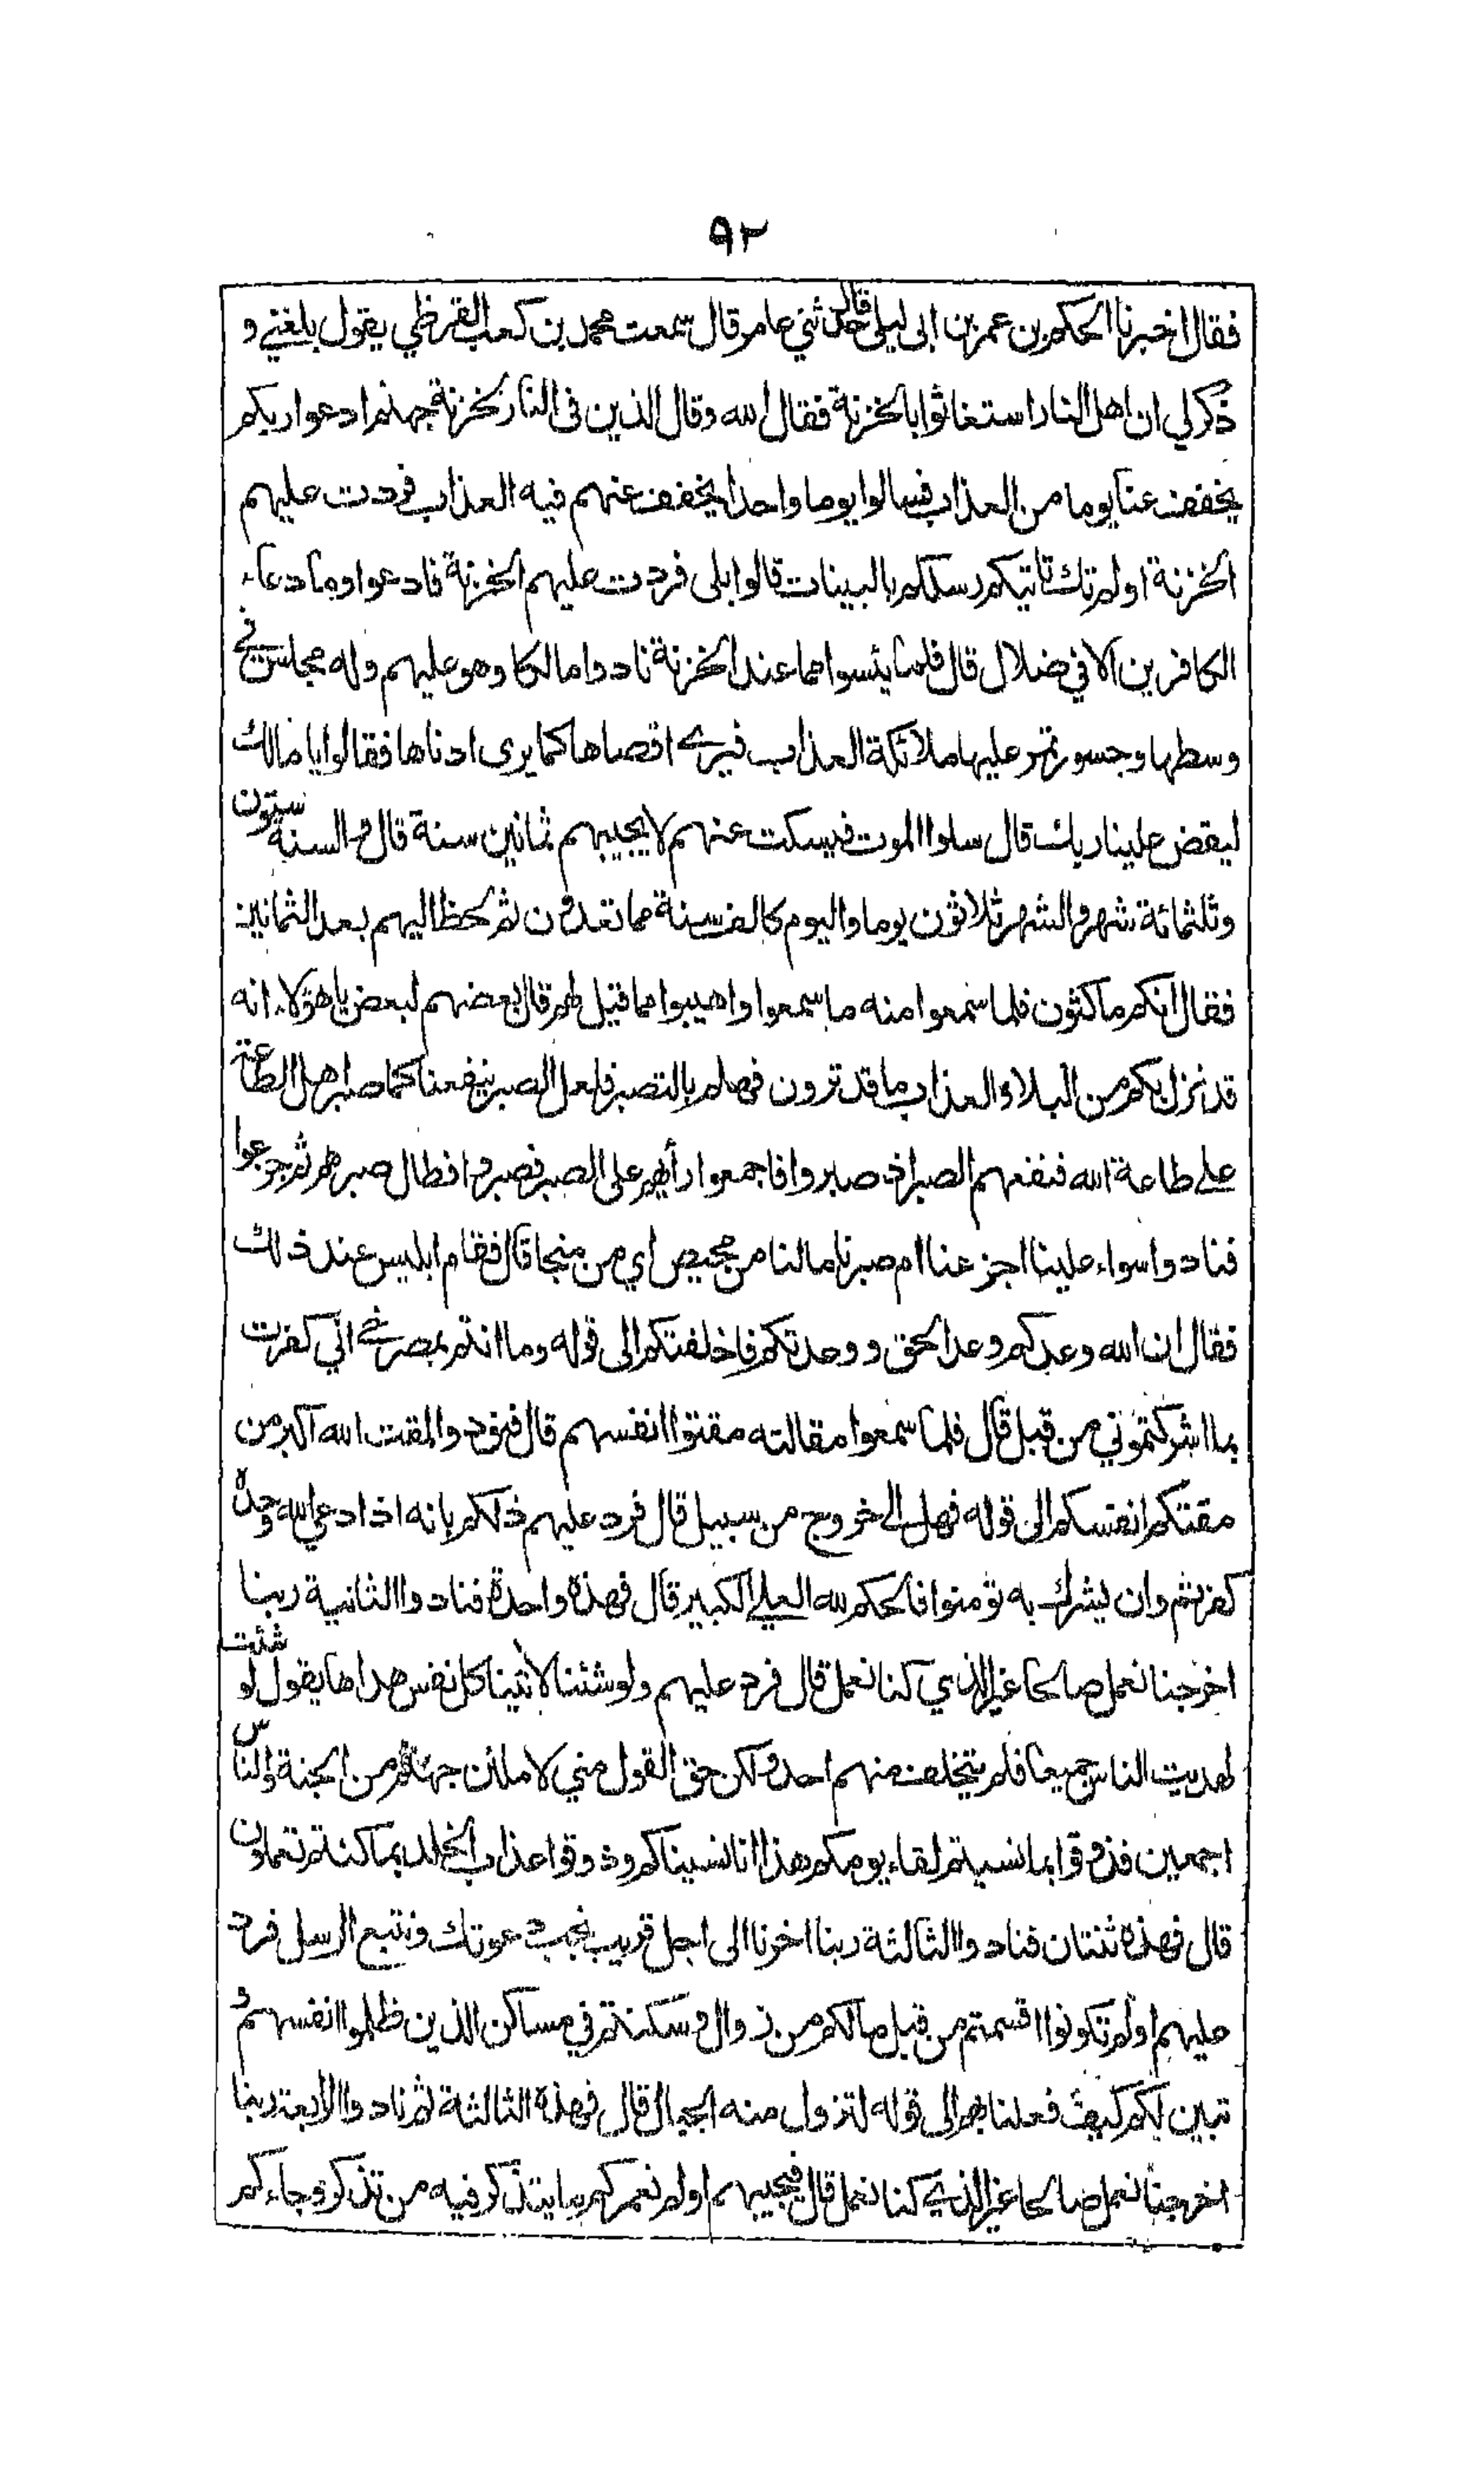 ٩٢
فقال اخبرنا الحكم بن عمر بن ابي ليلى قال حدثني عامر قال سمعت محمد بن كعب القرظي يقول بلغني و
ذكر لي ان اهل النار استغاثوا بالخزنة فقال الله وقال الذين في النار لخزنة جهنم ادعوا ربكم
يخفف عنا يوما من العذاب فسالوا يوما واحدا يخفف عنهم فيه العذاب فردت عليهم
الخزنة اولم تك تاتيكم رسلكم بالبينات قالوا بلى فردت عليهم الخزنة فادعوا وما دعاء
الكافرين الا في ضلال قال فلما يئسوا مما عند الخزنة نادوا مالكا وهو عليهم وله مجلس في
وسطها وجسور تمر عليها ملائكة العذاب فيرى اقصاها كما يرى ادناها فقالوا يا مالك
ليقض علينا ربك قال سلوا الموت فيسكت عنهم لا يجيبهم ثمانين سنة قال والسنة ستون
وثلثمائة شهر والشهر ثلاثون يوما واليوم كالف سنة مما تعدون ثم لحظ اليهم بعد الثمانين
فقال انكم ماكثون فلما سمعوا منه ما سمعوا واهيبوا مما قيل لهم قال بعضهم لبعض يا هؤلاء انه
قد نزل بكم من البلاء والعذاب ما قد ترون فهلم بالتصبر فلعل الصبر ينفعنا كما صبر اهل الطاعة
على طاعة الله فنفعهم الصبر اذ صبروا فاجمعوا رأيهم على الصبر فصبروا فطال صبرهم ثم جزعوا
فنادوا سواء علينا اجزعنا ام صبرنا ما لنا من محيص اي من منجا قال فقام ابليس عند ذلك
فقال ان الله وعدكم وعد الحق و وعدتكم فاخلفتكم الى قوله وما انتم بمصرخي اني كفرت
بما اشركتموني من قبل قال فلما سمعوا مقالته مقتوا انفسهم قال فنودوا لمقت الله اكبر من
مقتكم انفسكم الى قوله فهل الى خروج من سبيل قال فرد عليهم ذلكم بانه اذا دعي الله وحده
كفرتم وان يشرك به تومنوا فالحكم لله العلي الكبير قال فهذه واحدة فنادوا الثانية ربنا
اخرجنا نعمل صالحا غير الذي كنا نعمل قال فرد عليهم ولو شئنا لآتينا كل نفس هداها يقول لو شئت
لهديت الناس جميعا فلم يتخلف منهم احد ولكن حق القول مني لاملئن جهنم من الجنة والناس
اجمعين فذوقوا بما نسيتم لقاء يومكم هذا انا نسيناكم وذوقوا عذاب الخلد بما كنتم تعملون
قال فهذه ثنتان فنادوا الثالثة ربنا اخرنا الى اجل قريب نجب دعوتك ونتبع الرسل فرد
عليهم اولم تكونوا اقسمتم من قبل مالكم من زوال وسكنتم في مساكن الذين ظلموا انفسهم و
تبين لكم كيف فعلنا بهم الى قوله لتزول منه الجبال قال فهذه الثالثة ثم نادوا الرابعة ربنا
اخرجنا نعمل صالحا غير الذي كنا نعمل قال فيجيبهم اولم نعمركم ما يتذكر فيه من تذكر وجاءكم